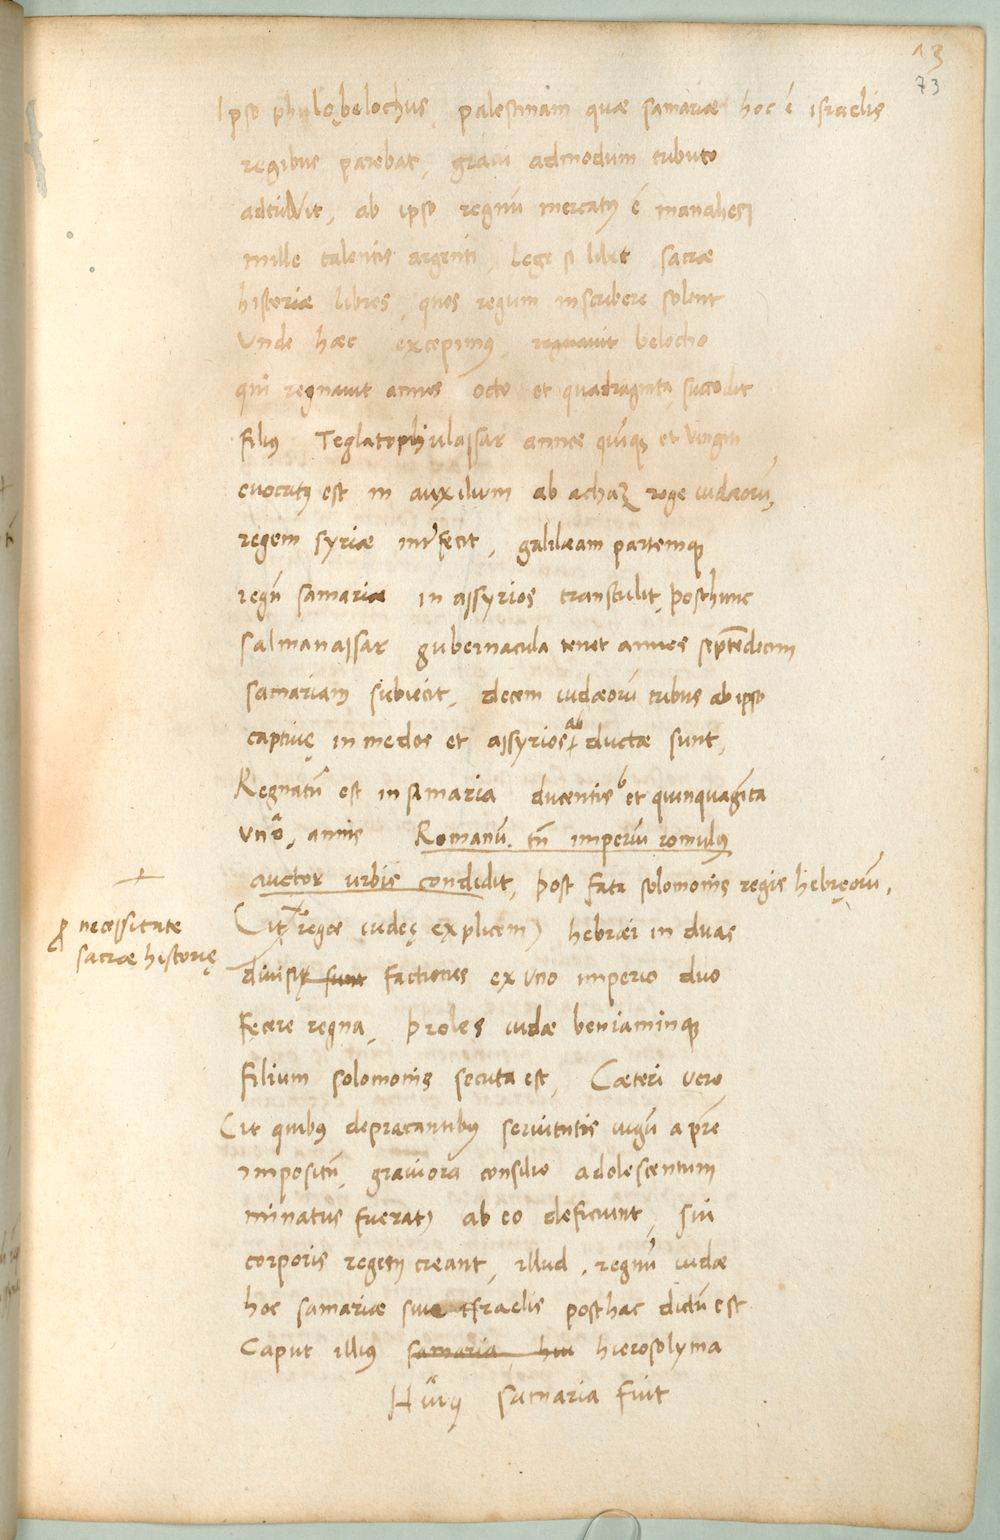 13
73
Ipso phulobelochus, palestinam quæ samariæ hoc ē israelis
regibus parebat, graui admodum tributo
ab ipso regnū mercatꝰ ē manahes
mille talentis argenti, Lege si libet sacræ
historiæ libros, quos regum inscribere solent
Unde hæc excepimꝰ, regnauit belocho
qui regnauit annos octo et quadraginta succedit
filiꝰ Teglatphulassar annos quīqꝫ et viginti
euocatꝰ est in auxilium ab achaz rege iudæorū,
regem syriæ interfecit, galilæam partemqꝫ
regnī samariæ in assyrios transtulit, posthunc
salmanassar gubernacula tenet annos septēdecim
samariam subiecit, decem iudæorū tribus ab ipso
captiuę in medos et assyrios abductæ sunt,
Regnatū est in samaria ducentis et quinquagīta
uno, annis Romanū. tn̄ imperiū romulꝰ
auctor urbis condidit, post fata solomonis regis hebręorū,
+
ꝓ necessitate
sacræ historię
(ut regæ iudeę explicem) hebræi in duas
diuisę sunt factiones ex uno imperio duo
fęcere regna, proles iudæ beniaminqꝫ
filium solomonis secuta est, Cæteri vero
(ut quibꝰ depræcantibꝰ seruitutis iugū a pr̄e
impositū, grauiora consilio adolescentum
minatus fuerat) ab eo deficiunt, sui
corporis regem creant, illud, regnū iudæ
hoc samariæ siue israelis posthac dictū est
Caput illiꝰ samaria, hui hierosolyma
Huiꝰ samaria fuit